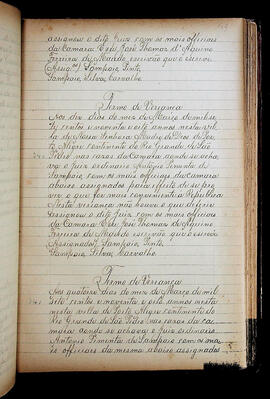 assignou o dito Juiz com os mais officiaes
da Camara Eu José Thomas d'Aquino
Ferreira de Macedo escrivão que o escrevi
Sampaio, Pinto,
Sampaio, Silva, Carvalho.
Termo de Veriança
Aos dez dias do mez de Março de mil se-
te centos e noventa e oito annos nesta Vil-
la de Nossa Senhora Madre de Deos de Por-
to Alegre continente do Rio Grande de São
Pedro nas cazas da camara aonde se acha-
va o juiz ordinario Antonio Pimenta de
Sampaio, com os mais officiaes da camara
abaixo assignados para effeito de se pro-
ver o que for mais conveniente a Republica
Nesta veriança não houve o que deferir
assignou o dito juiz com os mais officiaes
da Camara Eu José Thomas de Aquino,
Ferreira de Macedo escrivão que o escrevi
Assignados Sampaio, Pinto,
Sampaio, Silva, Carvalho.
Termo de Veriança
Aos quatorze dias do mez de Março de mil
sete centos e noventa e oito annos nesta
nesta villa de Porto Alegre continente do
Rio Grande de São Pedro nas cazas da ca-
mara aonde se achava o juiz ordinario
Antonio Pimenta de Sampaio com os ma-
is officiaes da mesma abaixo assignados